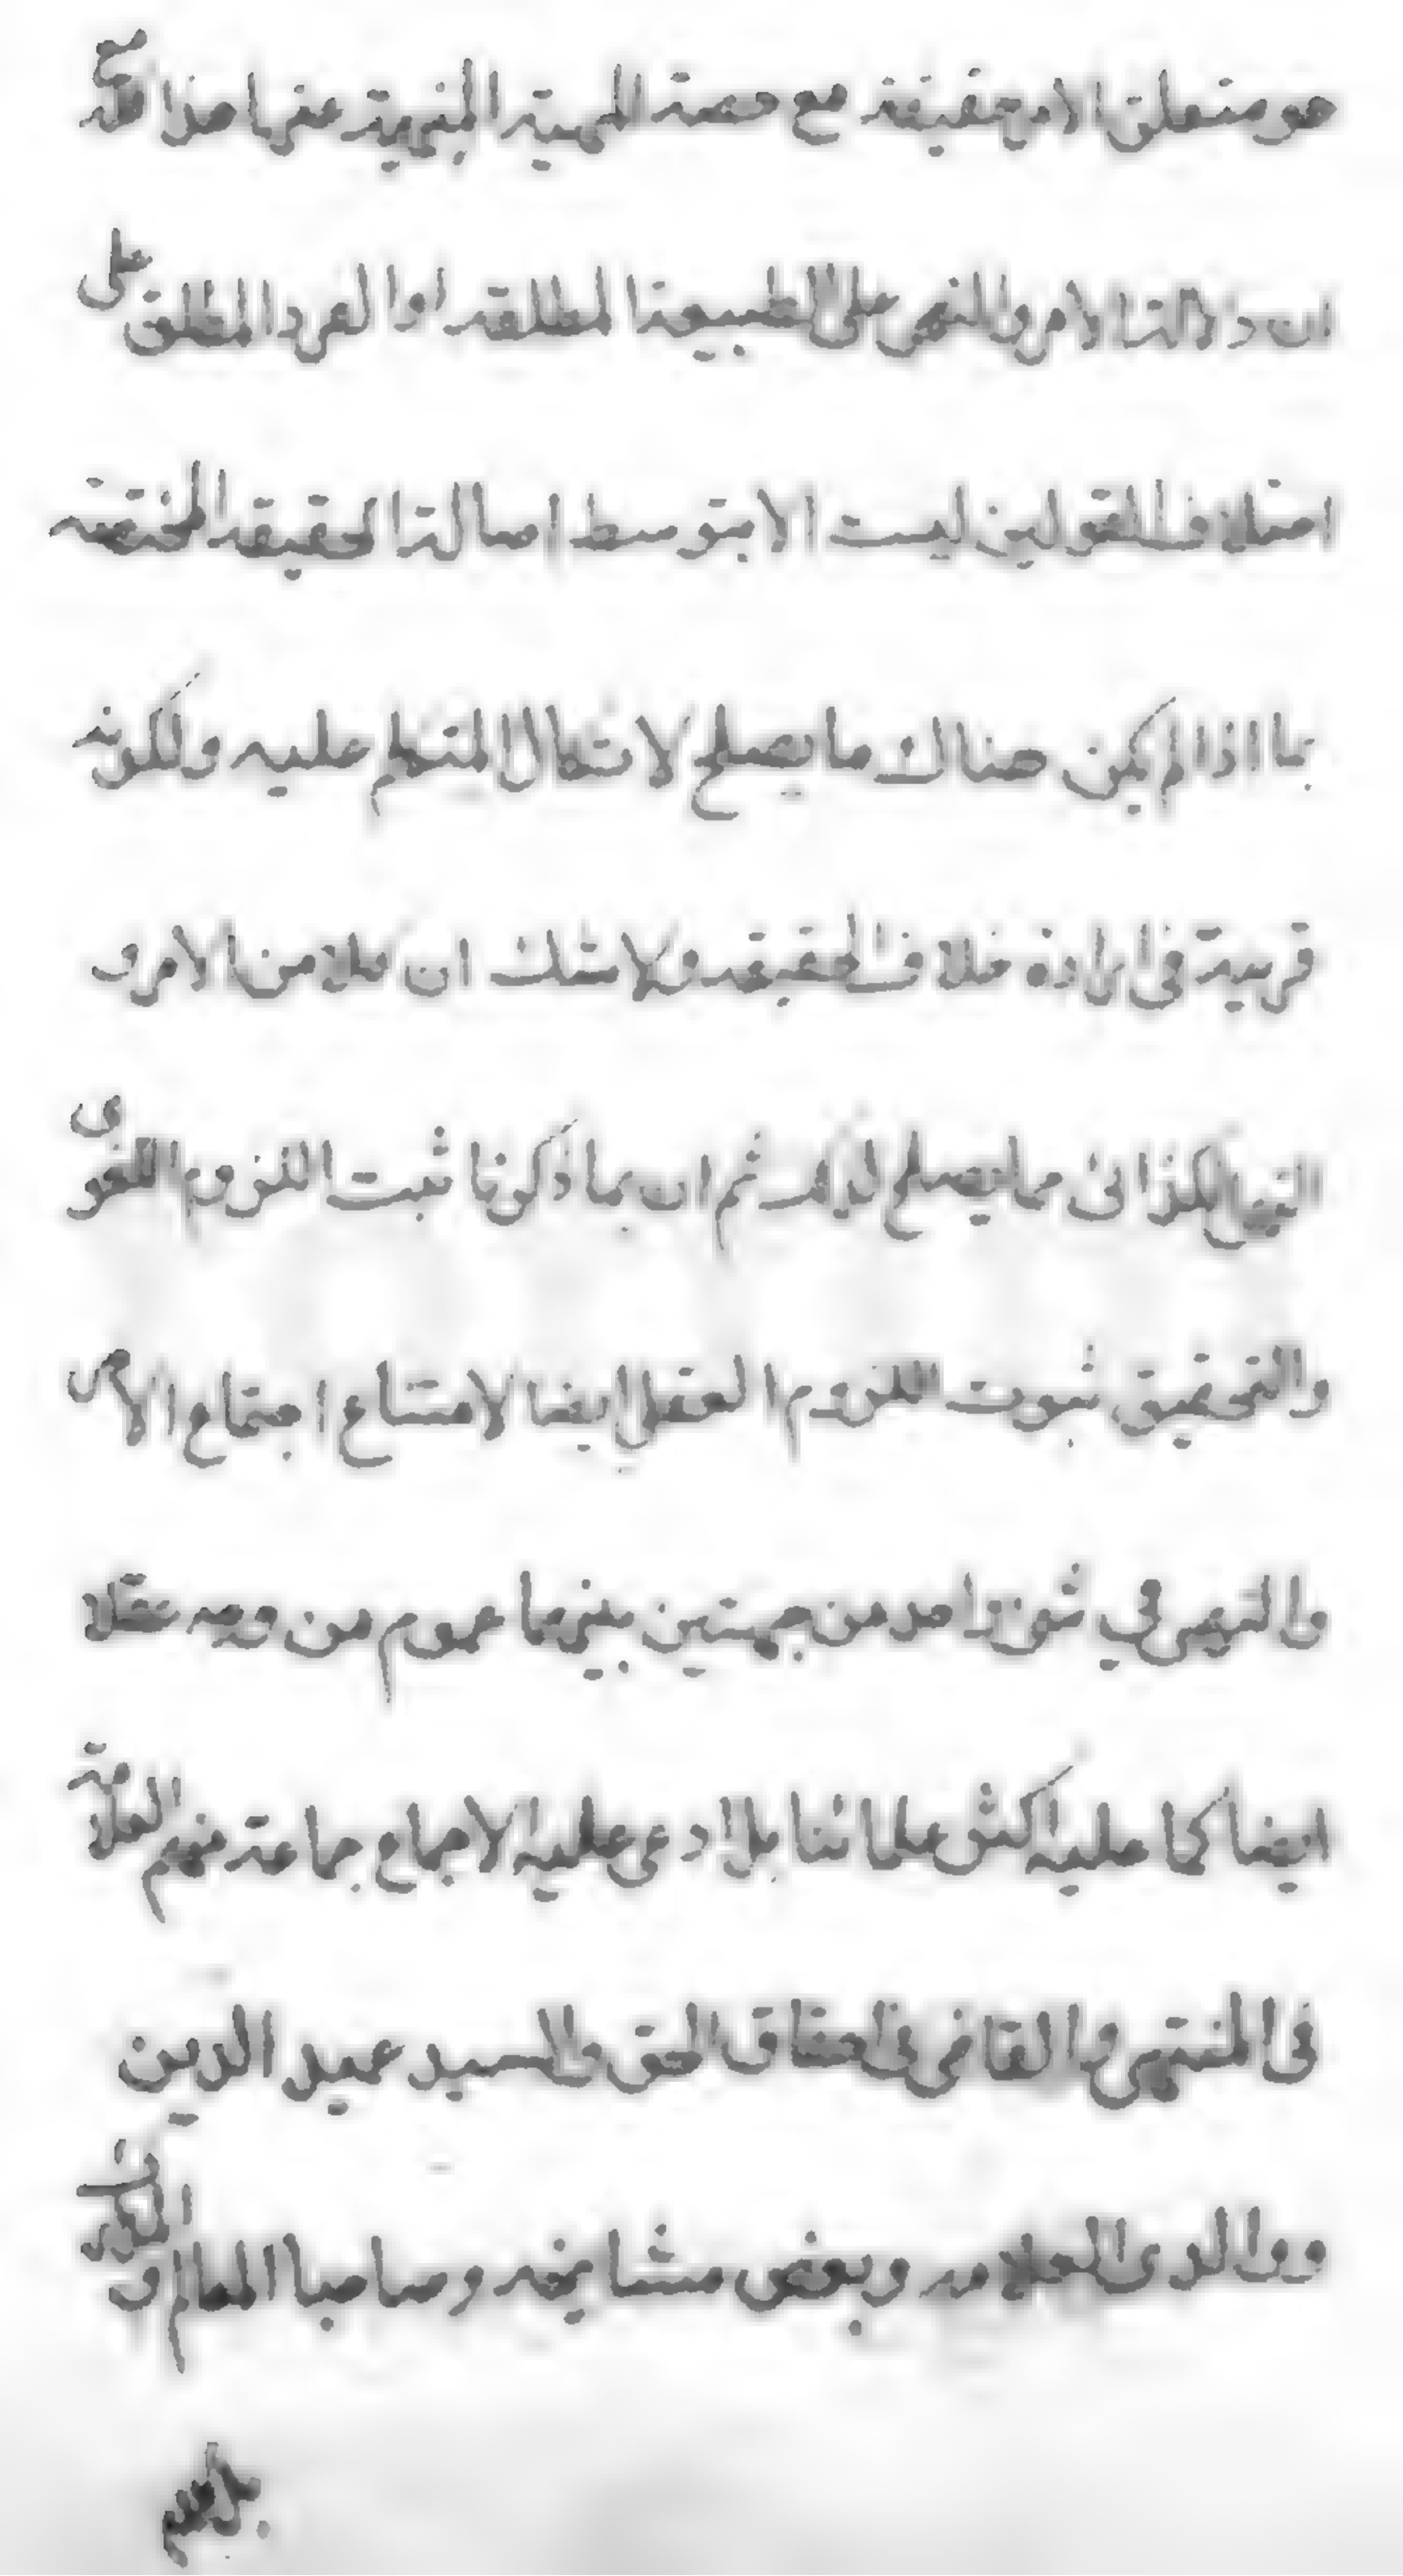 هو متعلق الامر حقيقة مع حصة المهية المنهية عنها هذا مع
ان دلالة الامر والنهي على الطبيعة المطلقة او الفرد المطلق على
اختلاف القولين ليست الا بتوسط اصالة الحقيقة المختصة
بما اذا لم يكن هناك ما يصلح لاتكال المتكلم عليه ولكونه
قرينة في ارادة خلاف الحقيقة ولا شك ان كلا من الامر و
النهي الكذائى مما يصلح لذلك ثم ان بما ذكرنا ثبت اللزوم اللغوى
والتحقيق ثبوت اللزوم العقلى ايضا لامتناع اجتماع الامر
والنهى في شىء واحد من جهتين بينهما عموم من وجه عقلا
ايضا كما عليه اكثر علمائنا بل ادعى عليه الاجماع جماعة منهم العلامة
فى المنتهى والقاضى فى احقاق الحق والسيد عميد الدين
ووالدى العلامه وبعض مشايخه وصاحبا المعالم و المدارك
بل